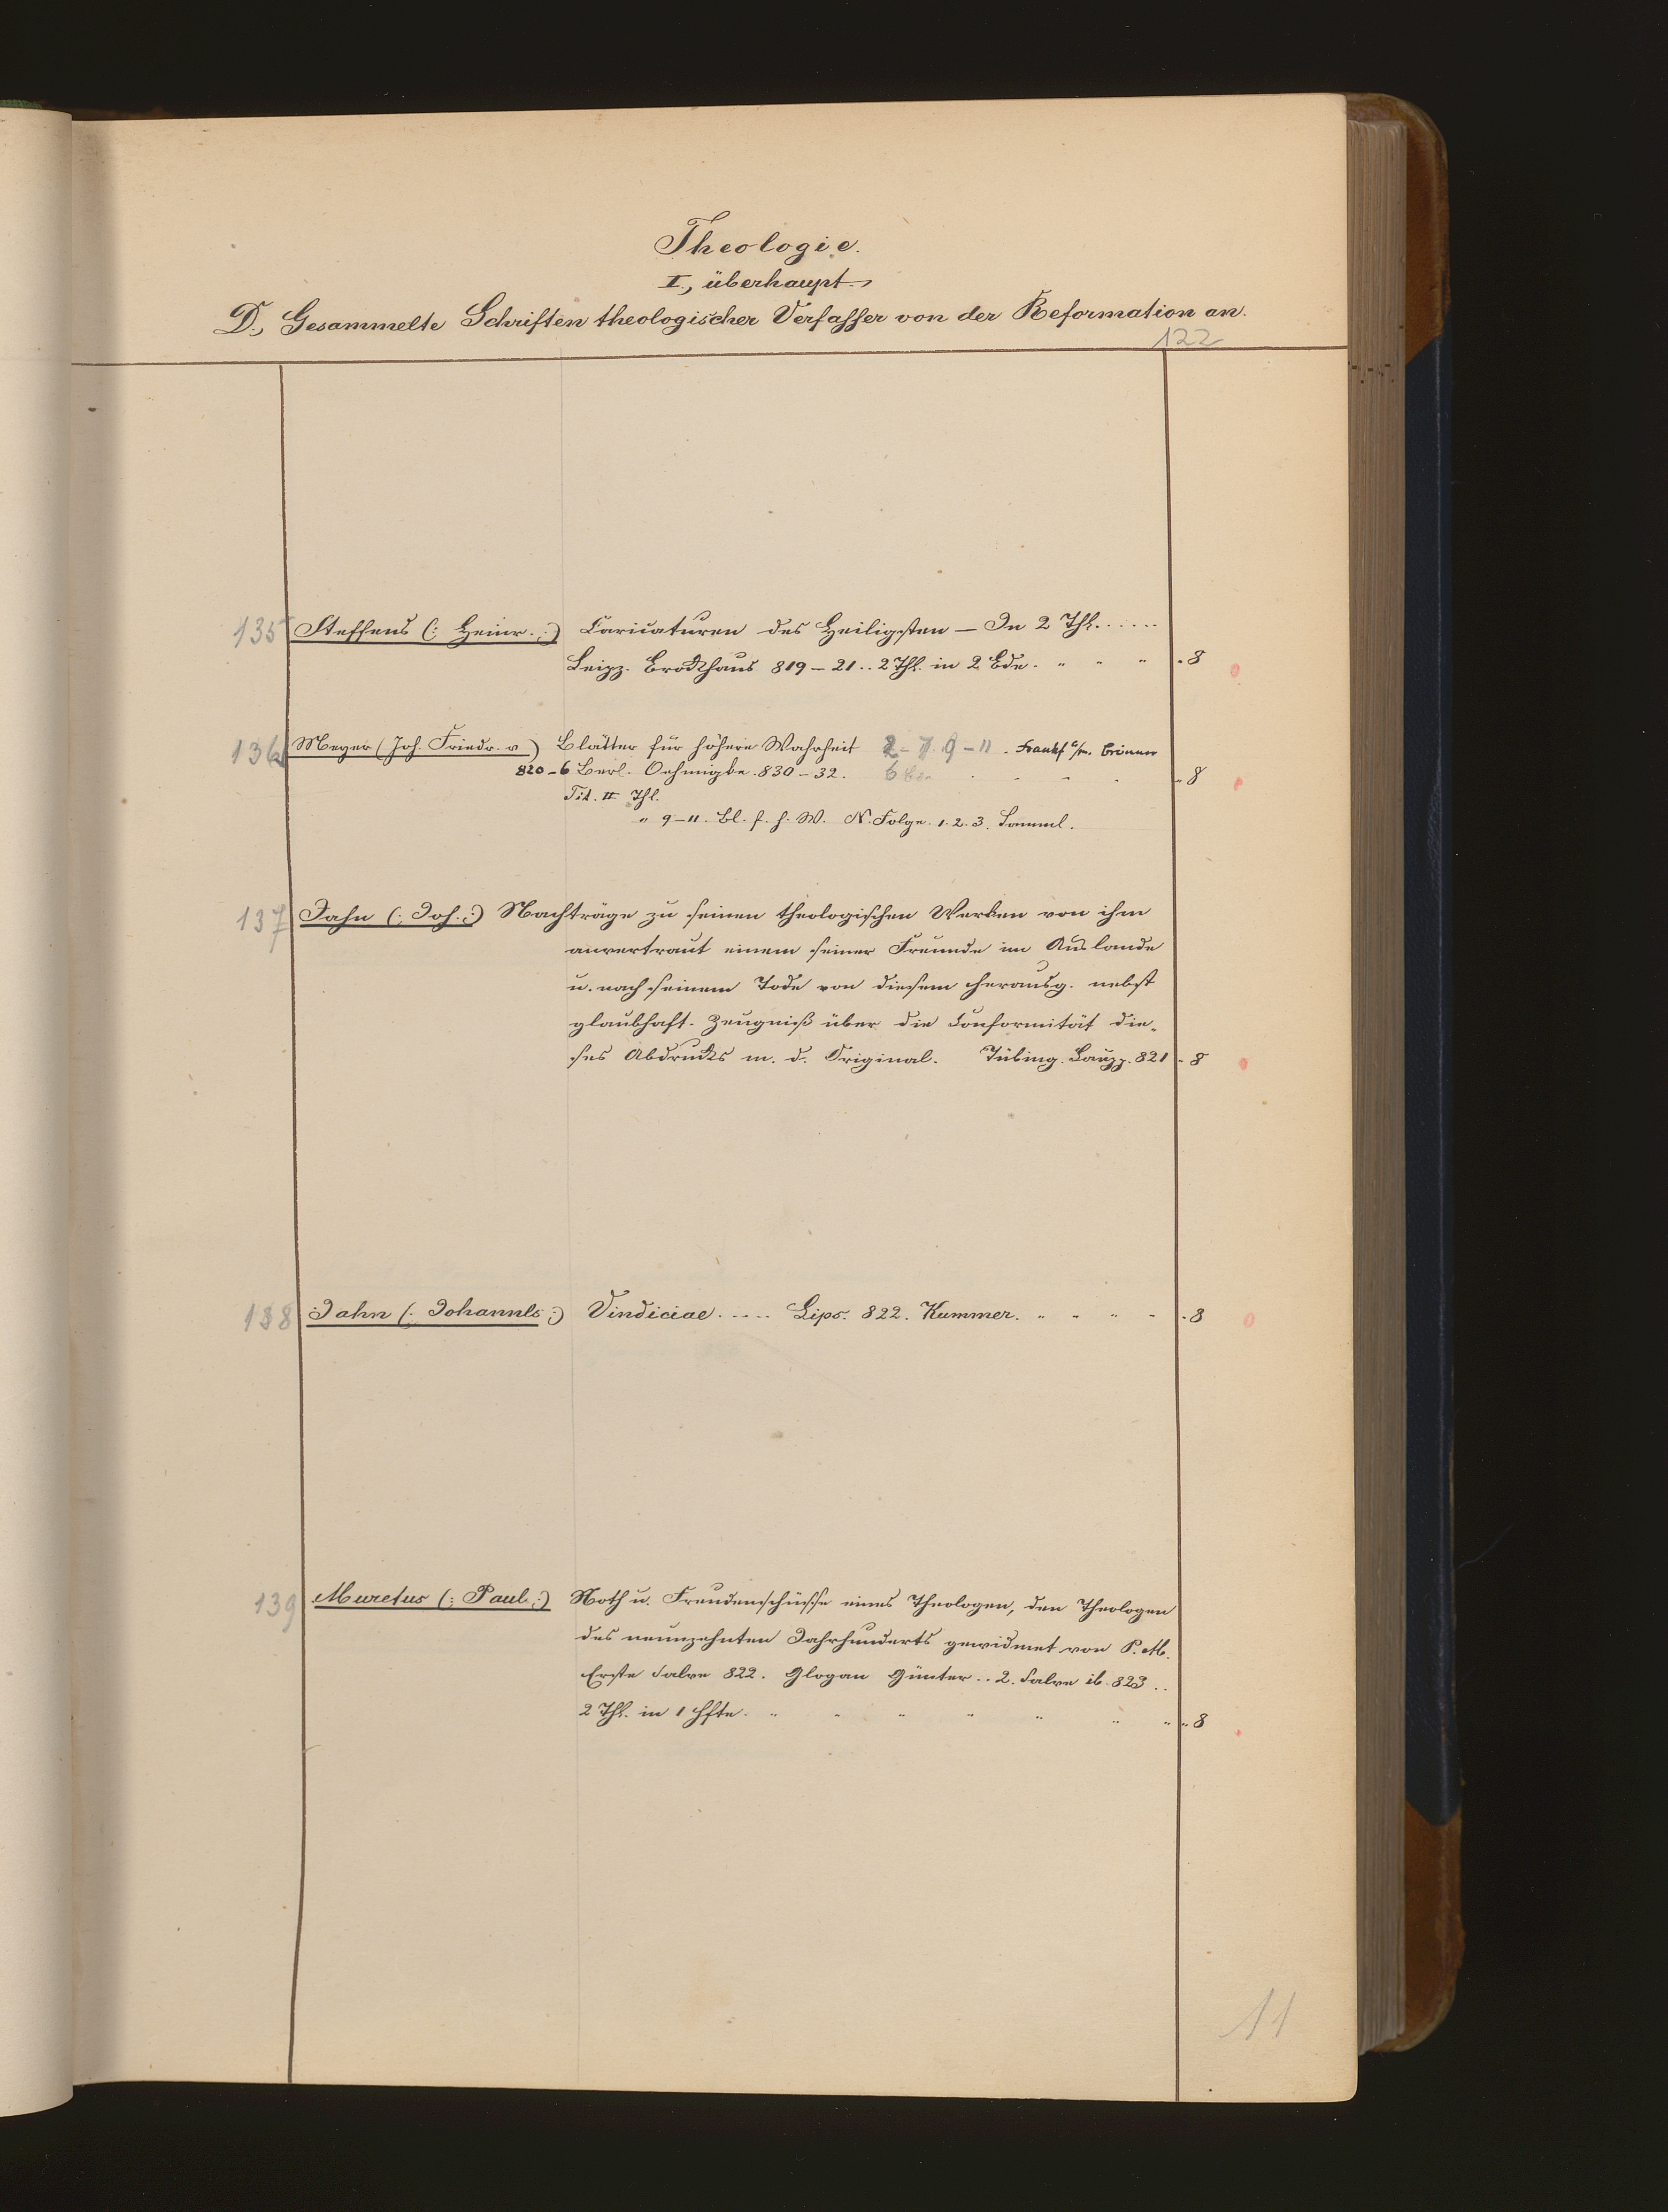 Theologie.
I., überhaupt.
D., Gesammelte Schriften theologischer Verfasser von der Reformation an.
122
135 Steffens (: Heinr. :) Caricaturen des Heiligsten — In 2 Thl. . . . . .
Leipz. Brockhaus 819 – 21 . . 2 Thl. in 2 Bde. " " " " 8
136 Meyer (Joh. Friedr. v) Blätter für höhere Wahrheit 2 – 7. 9 – 11 . Frankf a/m. Brönner
820 – 6 Berl. Oehmigke. 830 – 32. 6 Bde. " 8
Tit. II Thl.
" 9 – 11. Bl. f. h. W. N. Folge. 1. 2. 3. Samml.
137 Jahn (: Joh. :) Nachträge zu seinen theologischen Werken von ihm
anvertraut einem seiner Freunde im Auslande
u. nach seinem Tode von diesem herausg. nebst
glaubhaft. Zeugniß über die Conformität die-
ses Abdrucks m. d. Original. Tübing. Laupp. 821 " 8
138 Jahn (: Johannis :) Vindiciae . . . . . Lips. 822. Kummer. " " " " " 8
139 Muretus (: Paul :) Noth u. Freudenschüsse eines Theologen, den Theologen
des neunzehnten Jahrhunderts gewidmet von P. M.
Erste Salve 822. Glogau Günter . . 2. Salve ib. 823 . .
2 Thl. in 1 Hfte. " " " " " " " " 8
11